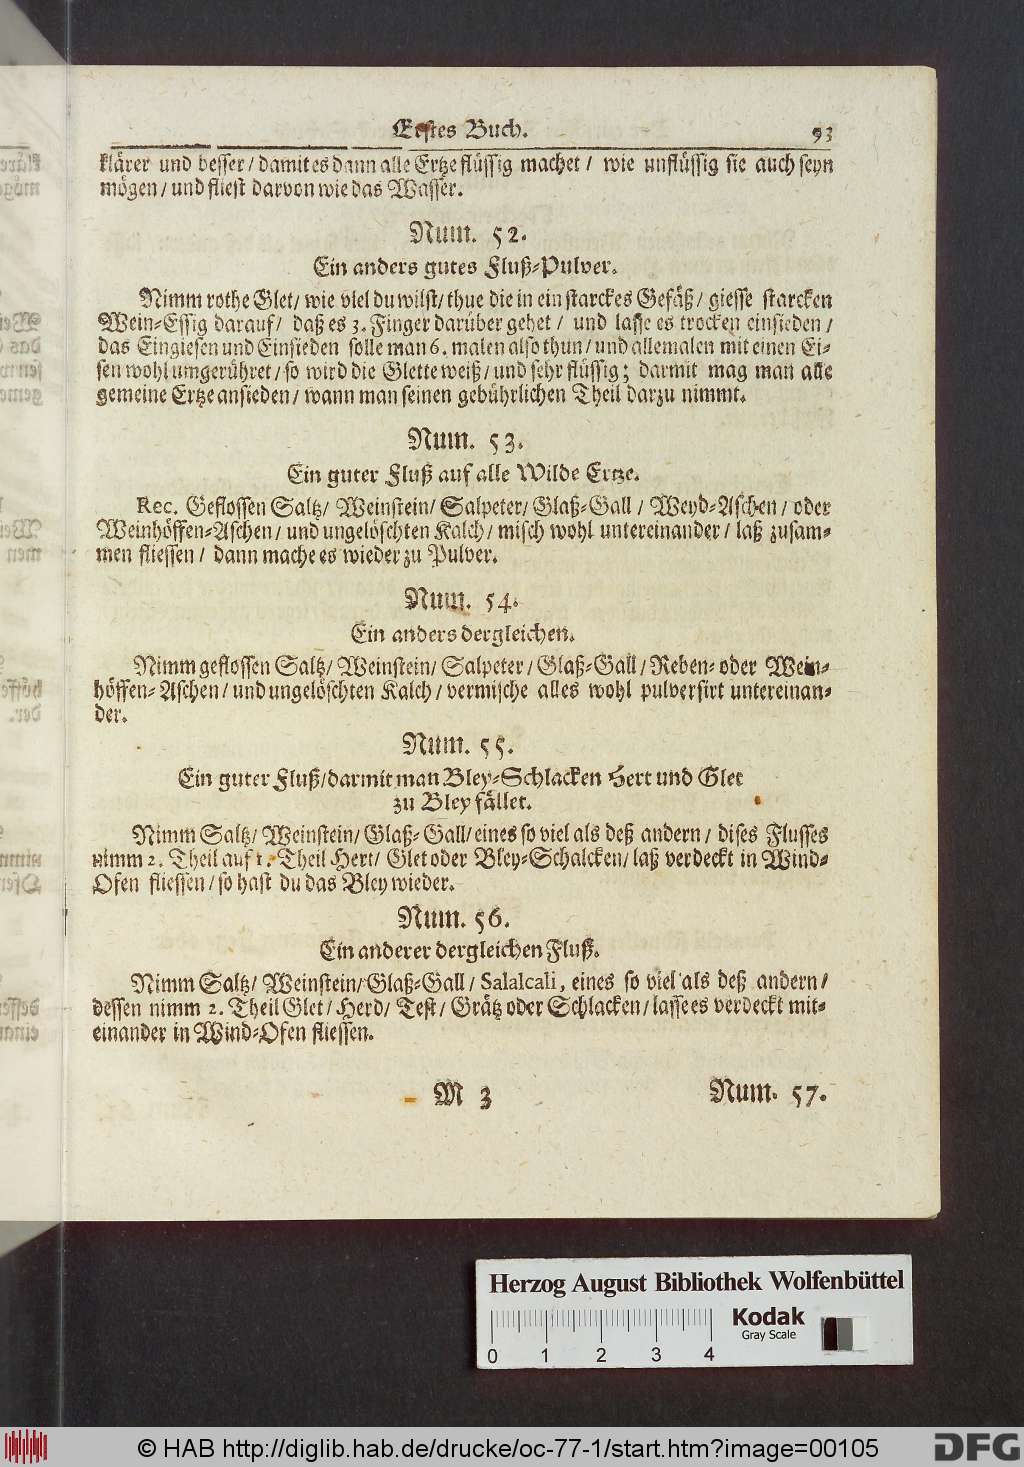 Erstes Buch. 93
klärer und besser / damit es dann alle Ertze flüssig machet / wie unflüssig sie auch seyn
mögen / und fliest darvon wie das Wasser.
Num. 52.
Ein anders gutes Fluß-Pulver.
Nimm rothe Glet / wie viel du wilst / thue die in ein starckes Gefäß / giesse starcken
Wein-Essig darauf / daß es 3. Finger darüber gehet / und lasse es trocken einsieden /
das Eingiesen und Einsieden solle man 6. malen also thun / und allemalen mit einen Ei-
sen wohl umgerühret / so wird die Glette weiß / und sehr flüssig ; darmit mag man alle
gemeine Ertze ansieden / wann man seinen gebührlichen Theil darzu nimmt.
Num. 53.
Ein guter Fluß auf alle Wilde Ertze.
Rec. Geflossen Saltz / Weinstein / Salpeter / Glaß-Gall / Weyd-Aschen / oder
Weinhöffen-Aschen / und ungelöschten Kalch / misch wohl untereinander / laß zusam-
men fliessen / dann mache es wieder zu Pulver.
Num. 54.
Ein anders dergleichen.
Nimm geflossen Saltz / Weinstein / Salpeter / Glaß-Gall / Reben- oder Wein-
höffen-Aschen / und ungelöschten Kalch / vermische alles wohl pulversirt untereinan-
der.
Num. 55.
Ein guter Fluß / darmit man Bley-Schlacken Hert und Glet
zu Bley fället.
Nimm Saltz / Weinstein / Glaß-Gall / eines so viel als deß andern / dises Flusses
nimm 2. Theil auf 1. Theil Hert / Glet oder Bley-Schalcken / laß verdeckt in Wind-
Ofen fliessen / so hast du das Bley wieder.
Num. 56.
Ein anderer dergleichen Fluß.
Nimm Saltz / Weinstein / Glaß-Gall / Salalcali, eines so viel als deß andern /
dessen nimm 2. Theil Glet / Herd / Test / Grätz oder Schlacken / lasse es verdeckt mit-
einander in Wind-Ofen fliessen.
M 3 Num. 57.
Herzog August Bibliothek Wolfenbüttel
Kodak
Gray Scale
0 1 2 3 4
© HAB http://diglib.hab.de/drucke/oc-77-1/start.htm?image=00105
DFG